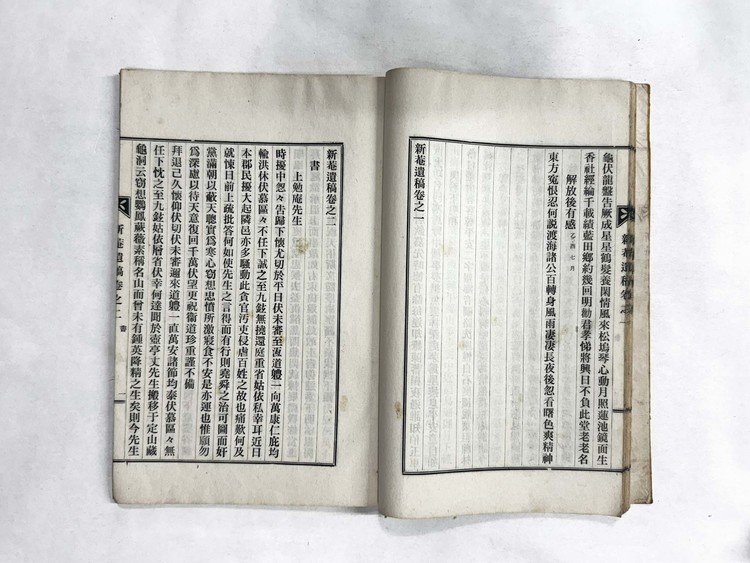 新菴遺稿卷之一
龜伏龍盤告厥成星星鶴髮養閑情風來松塢琴心動月照蓮池鏡面生
香社經綸千載績藍田鄉約幾回明勸君孝悌將興日不負此堂老老名
解放後有感 乙酉七月
東方冤恨忍何說渡海諸公百轉身風雨凄凄長夜後忽看曙色爽精神
新菴遺稿卷之一
新菴遺稿卷之二
書
上勉庵先生
時擾中怱々告歸下懷尤切於平日伏未審至沍道體一向萬康仁庇均
輸洪休伏慕區々不任下誠之至九鉉無撓還庭重省姑依私幸耳近日
本郡民擾大起隣邑亦多騷動此貪官污吏侵虐百姓之故也痛歎何及
就悚日前上疏批答何如使先生之言得而有行則堯舜之治可圖而奸
黨滿朝以蔽天聰實爲寒心窃想忠憤所激寢食不安是亦運也惟願勿
爲深慮以待天意復回千萬伏望更祝衛道珍重謹不備
拜退已久懷仰伏切伏未審邇來道體一直萬安諸節均泰伏慕區々無
任下忱之至九鉉姑依層省伏幸何達聞於壺亭丈先生搬移于定山藏
龜洞云窃想鸚鳳蕨薇素稱名山而曾未有鍾英降精之生矣則今先生
新菴遺稿卷之二 書